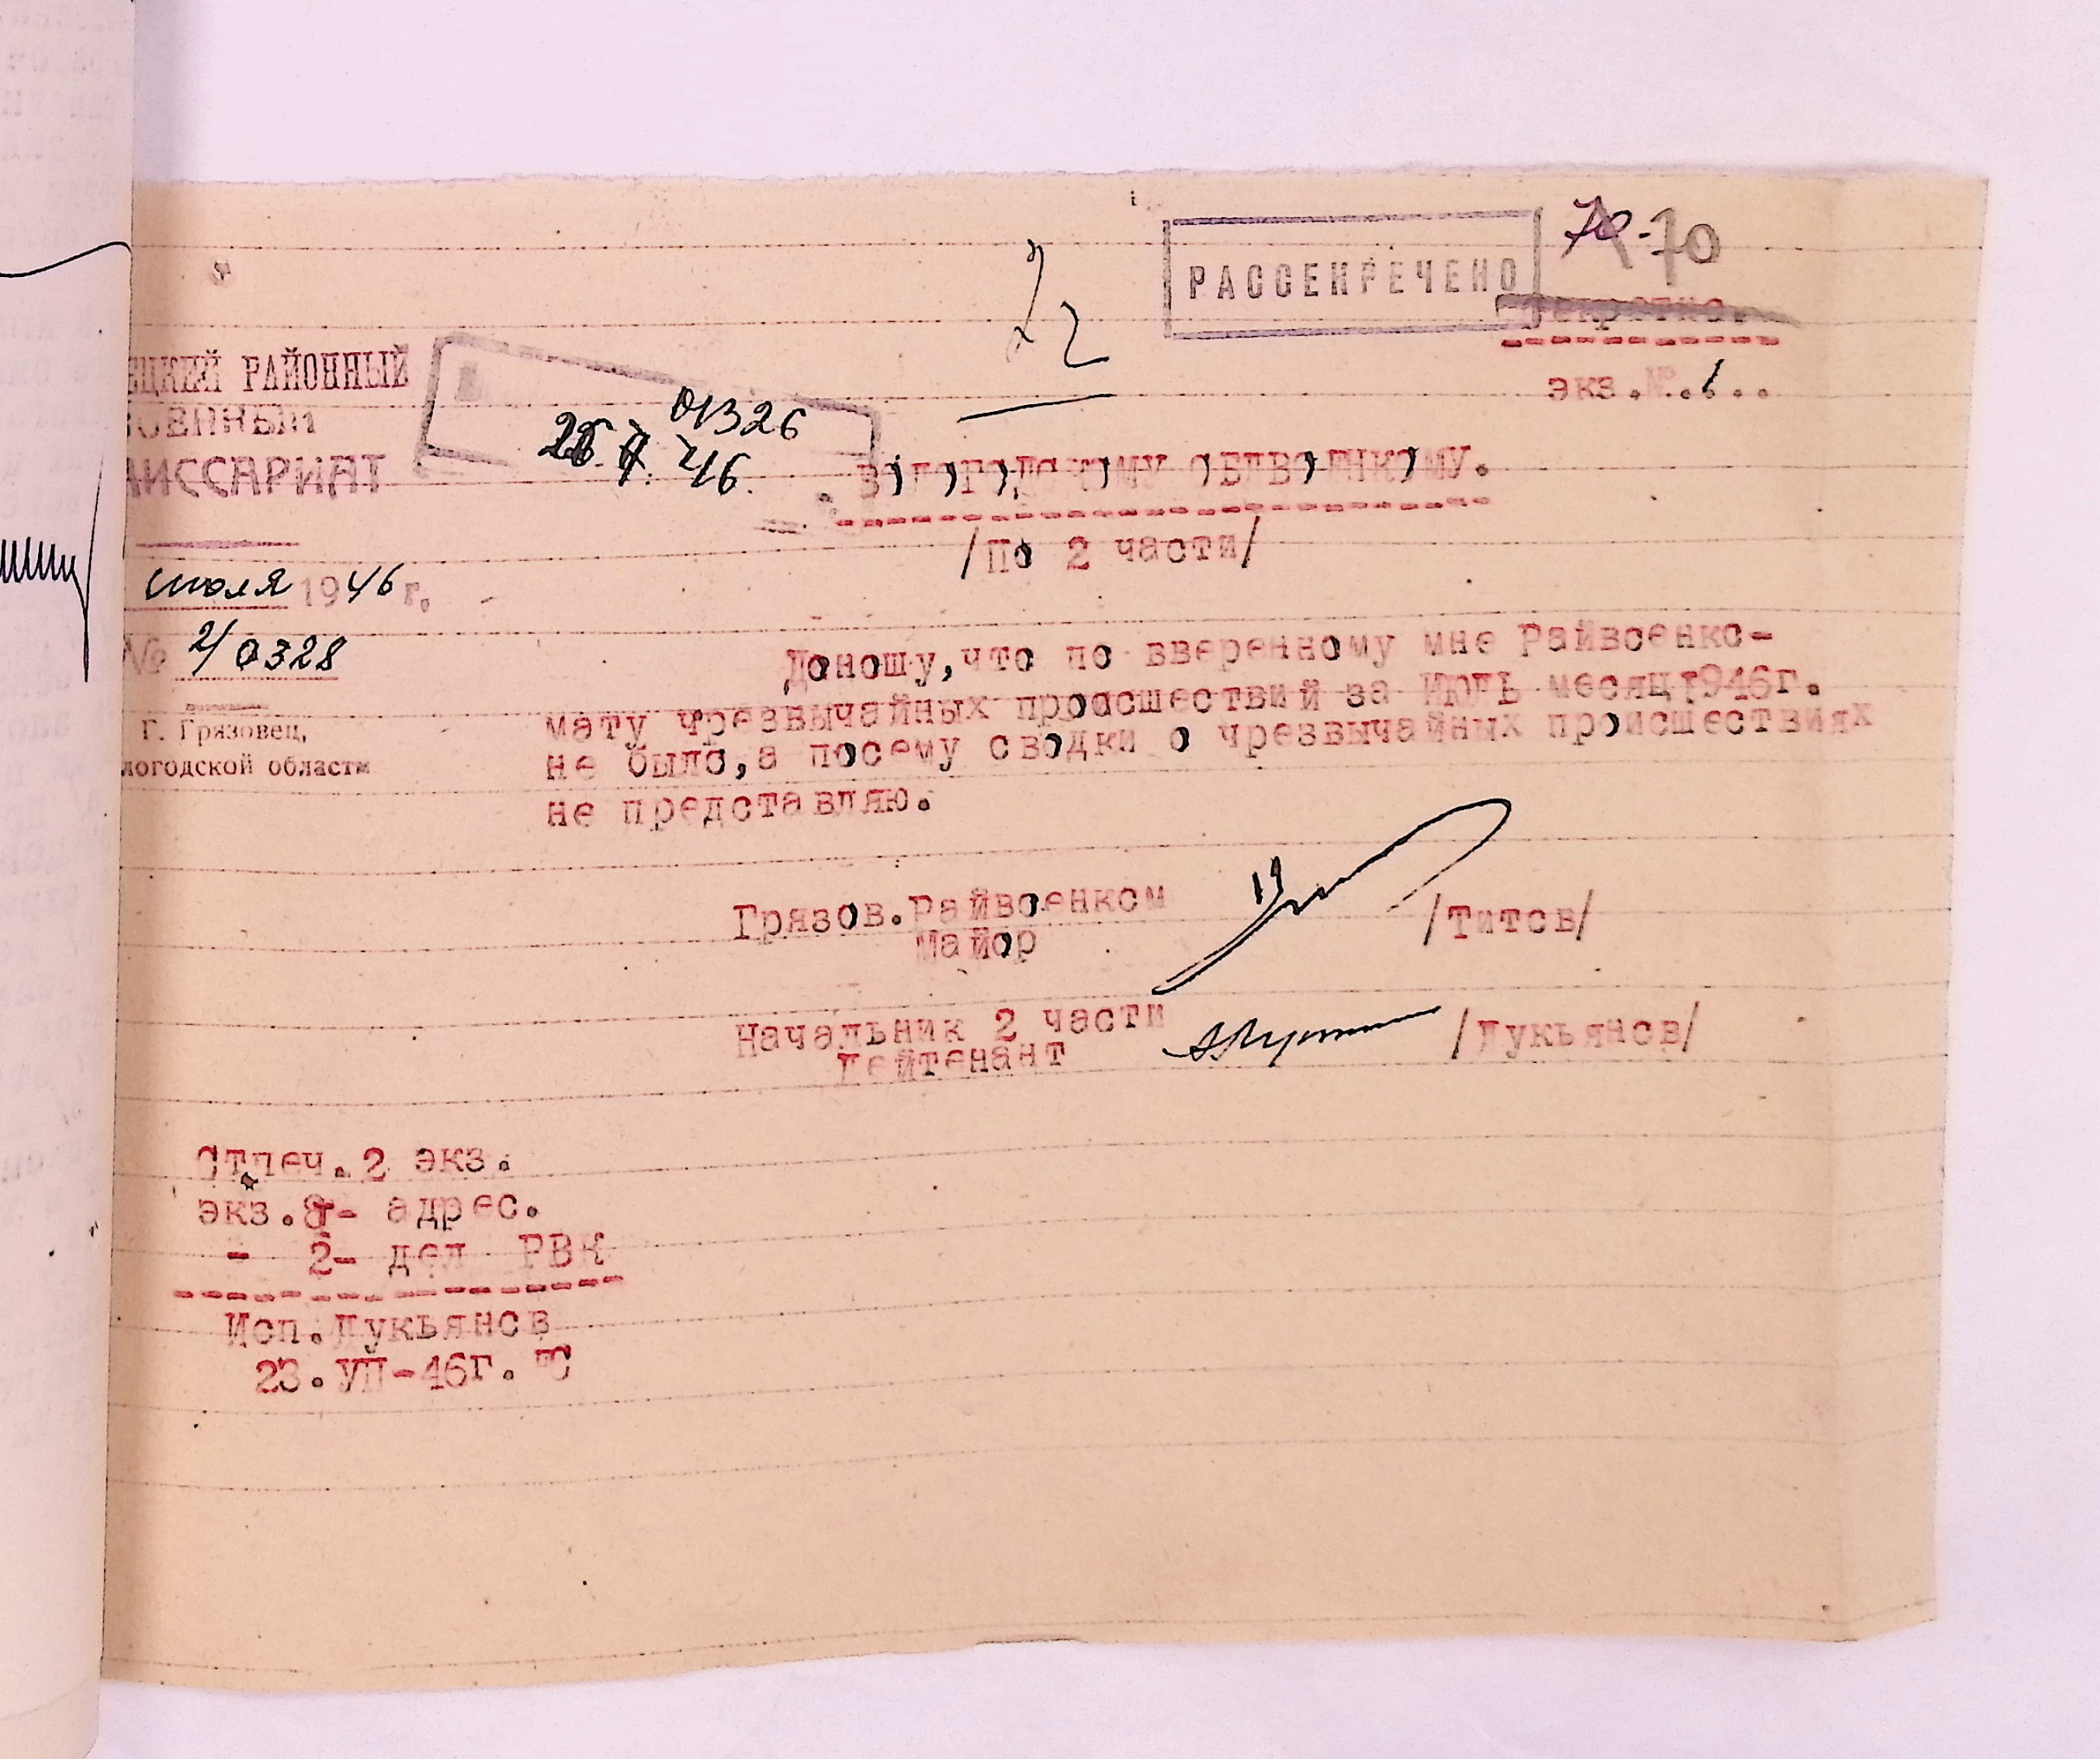 70-
70
РАССЕКРЕЧЕНО
Секретно.
экз.№.1..
ЕЦКИЙ РАЙОННЫЙ
ОЕННЫЙ
МИССАРИАТ
01326
26. 7. 46.
ВОЛОГОДСКОМУ ОБЛВОЕНКОМУ.
/По 2 части/
июля 1946 г.
№ 2/0328
Г. Грязовец,
логодской области
Доношу,что по вверенному мне Райвоенко-
мату чрезвычайных происшествий за ИЮЛЬ месяц 1946г.
не было,а посему сводки о чрезвычайных происшествиях
не представляю.
Грязов.Райвоенком
майор
/Титов/
Начальник 2 части
Лейтенант
/Лукьянов/
Отпеч.2 экз.
экз.1- адрес.
- 2- дел РВК
Исп.Лукьянов
23.УП-46г. ТС